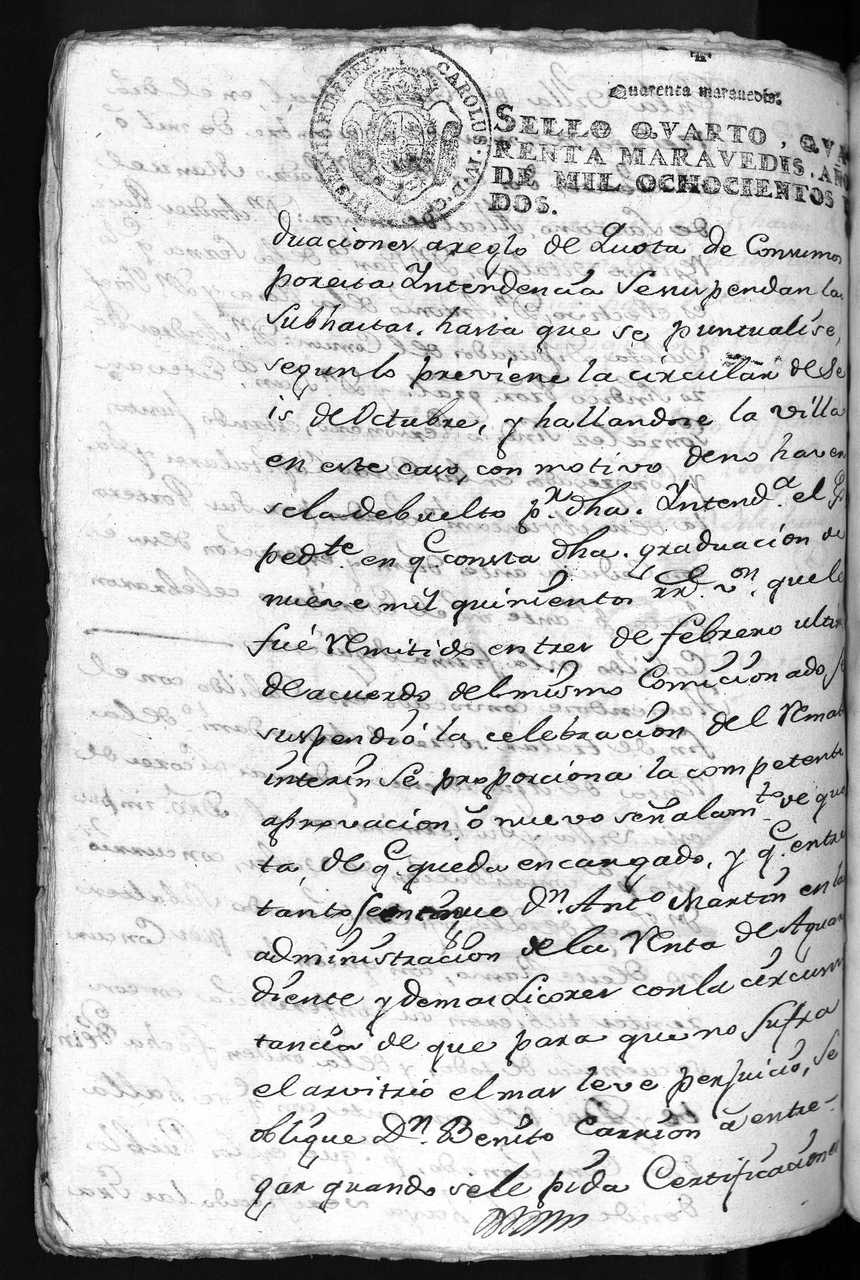 CAROLUS · IV · D · G ·
HISPANIAR REX
Quarenta maravedis.
SELLO QVARTO, QVA
RENTA MARAVEDIS. AÑO
DE MIL OCHOCIENTOS Y
DOS.
duaciones areglo de Quota de Consumos
poresta Yntendencia sesuspendan las
subhastas. hasta que se puntualise,
segun lo previene la circular de Se
is de Octubre, y hallandose la villa
en este caso, con motivo deno haver
sela debuelto pr. dha. Yntenda. el
pedte. en q. consta dha. graduacion de
nueve mil quinientos rrs. von. que le
fué remitido en tres de febrero ultim
de acuerdo del mismo Comicionado, se
suspendió la celebracion del Remate
interin se proporciona la competente
aprovacion ó nuevo señalamto. ve que
ta, de q. queda encargado, y q. entre
tanto se continue Dn. Anto Martin en la
administracion de la Venta de Aguar
diente y demas Licores con la circuns
tancia de que para que no sufra
el arvitrio el mas leve perjuicio, se
oblique Dn. Benito Carrion á entre-
gar quando se le pida Certificaciones